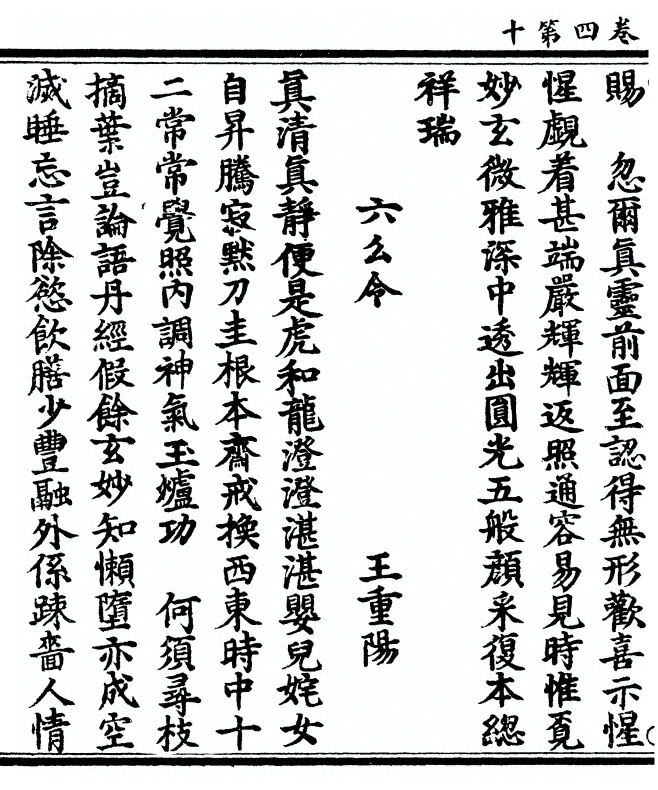 卷四第十
賜　忽爾真靈前面至認得無形歡喜示惺
惺覷着甚端嚴輝輝返照通容易見時惟覔
妙玄微雅深中透出圓光五般顏采復本總
祥瑞
六么令　王重陽
真清真靜便是虎和龍澄澄湛湛嬰兒姹女
自昇騰寂默刀圭根本齋戒換西東時中十
二常常覺照內調神氣玉爐功　何須尋枝
摘葉豈論語丹經假餘玄妙知懶墮亦成空
滅睡忘言除慾飲膳少豐融外係踈嗇人情